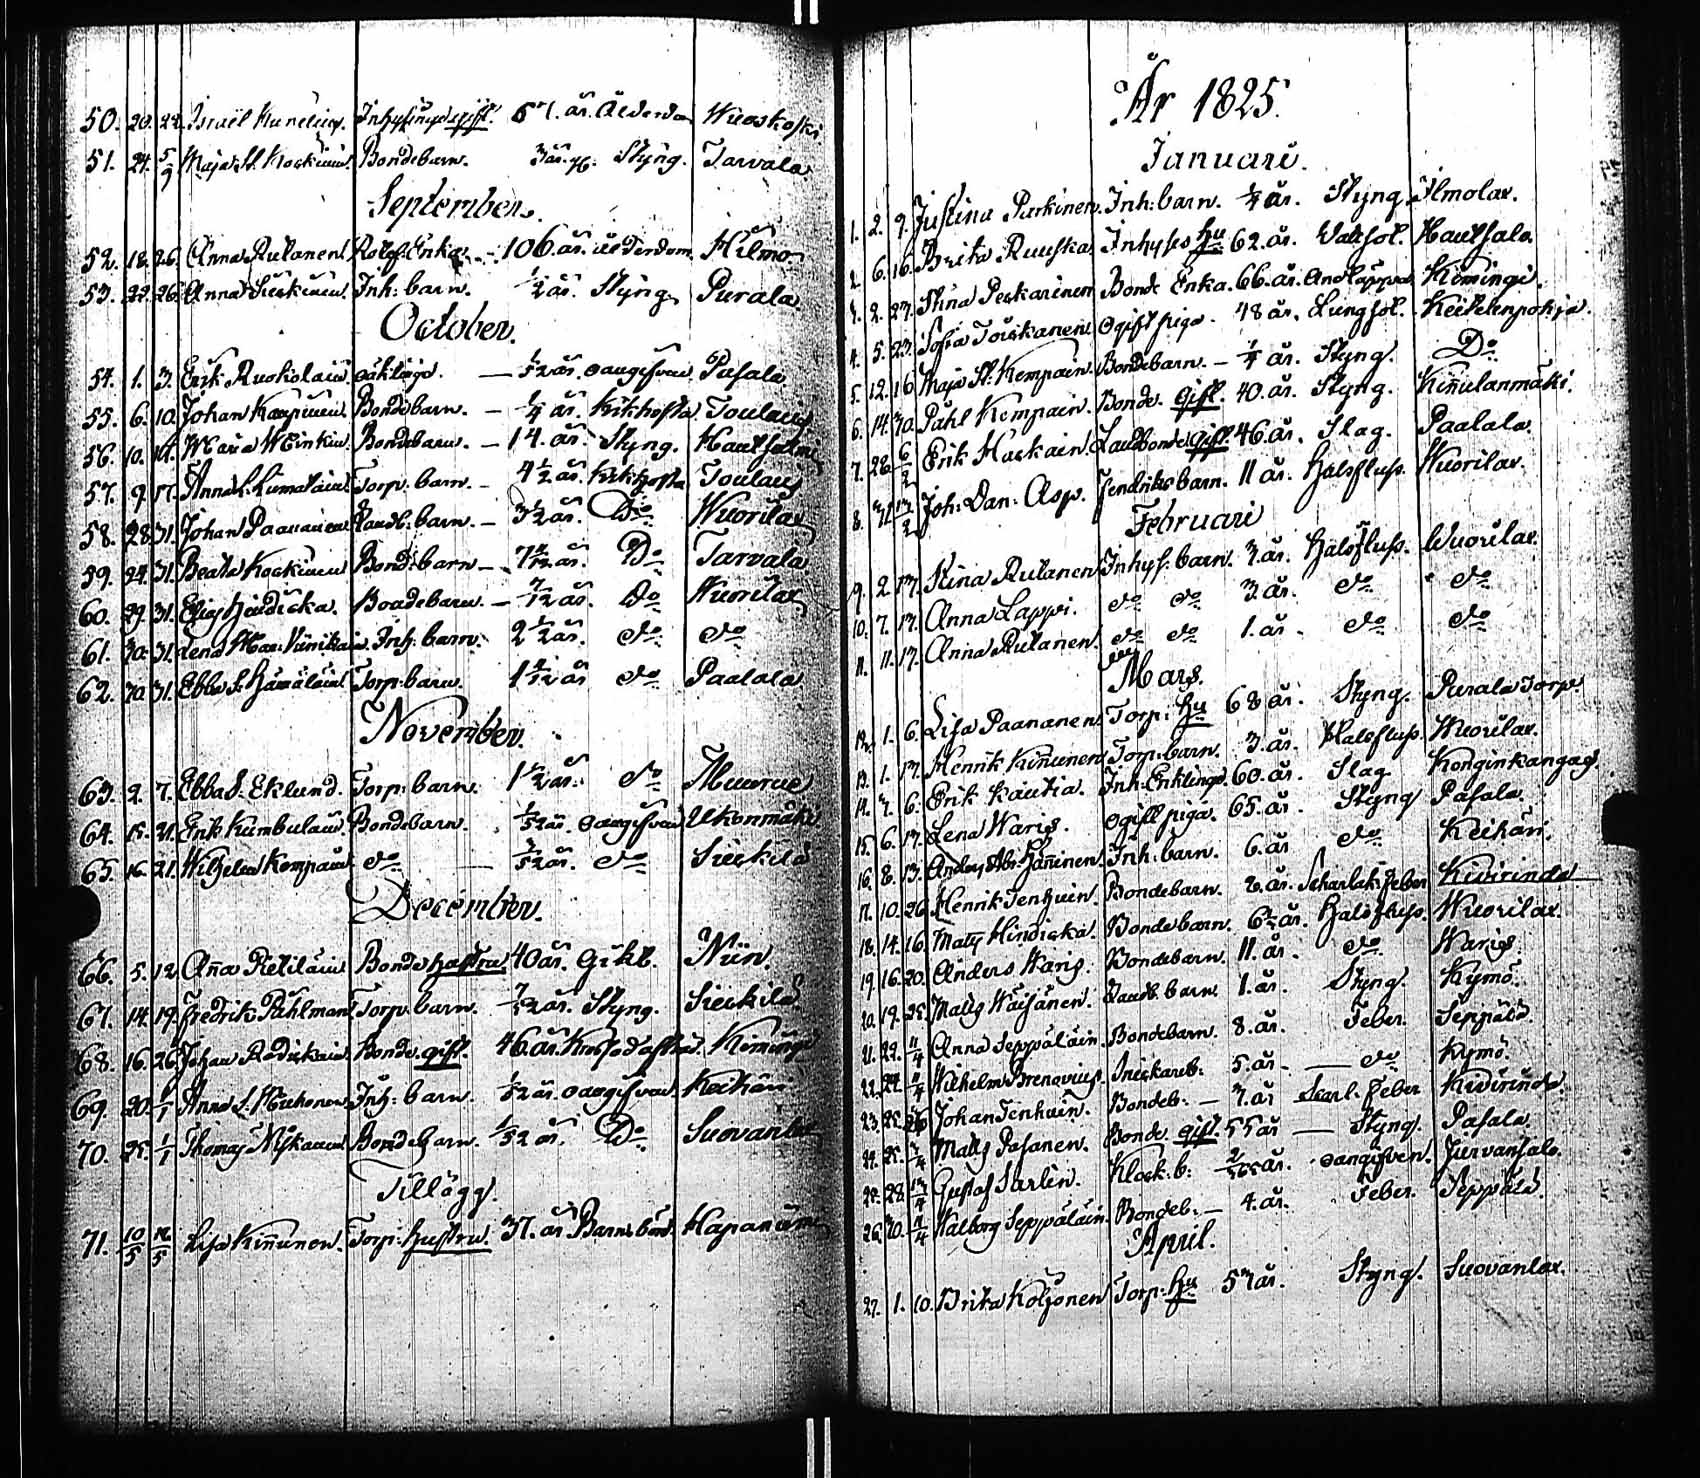 50. 20. 22. Israël Kunelius. Inhysing gift. 51. år. Ålderdom Wuoskoski
51. 24. 5/9 Maja St. Koskinin. Bondebarn. 3 år. Styng. Tarvala
September.
52. 18. 26. Anna Rutanen Rotef. Enka. 106. år. ålderdom. Hilmo
53. 22. 26. Anna Sieskinen. Inh: barn. 1/2 år. Styng. Purala
October.
54. 1. 3. Erik Ruokolain oäkta gd. — 1/52 år. oangifven Pasala
55. 6. 10. Johan Kaupinin. Bondebarn. — 1/4 år. Kikhosta Toulais
56. 10. 17. Maria Minkin. Bondebarn. — 14. år. Styng. Hautsalmi
57. 9. 17. Anna L. Lumalain Torp. barn. — 4 1/2 år. Kikhosta Toulais
58. 28. 31. Johan Paananen Landb: barn. — 3 1/2 år. Do Wuorilax
59. 24. 31. Beata Koskinen Bond: barn — år. Do Tarvala
60. 29. 31. Elias Hindicka. Bondebarn. — 7/12 år. Do Wuorilax
61. 30. 31. Lena Mar: Inh: barn. 2 1/2 år. do do
62. 30. 31. Ebba S. Hämäläin Torp: barn. år do Paalala
November.
63. 2. 7. Ebba S. Eklund. Torp: barn. 1 1/2 år. do Muurue
64. 15. 21. Erik Kumbulain Bondebarn. /52 år. oangifven Ukonmäki
65. 16. 21. Wilhelm Kempain do — /52 år. do Sieckilä
December.
66. 5. 12. Anna Pietiläin Bonde hustru 40 år. Gikt. Niin.
67. 14. 19. Fredrik Påhlman Torp. barn. /52 år. Styng. Sieckilä
68. 16. 26. Johan Bonde gift. 46. år. Kimingi
69. 20. 1/1 Anna L. Inh: barn /52 år. oangifven Keihäri
70. 25. 1/1 Thomas Nyckanen Bondebarn. /52 år. Do Suovanlax
Tillägg.
71. 10/5 16/5 Lisa Kinnunen. Torp: hustru. 37. år Barnsbörd. Hapaniemi
År 1825.
Januari.
1. 2. 9. Justina Parkinen. Inh: barn. 1/4 år. Styng Ilmolax.
2. 6. 16. Brita Ruuska Inhyses hu 62. år. Vattsot. Hautsala.
3. 2. 23. Stina Peskarinen Bonde Enka. 66. år. Andtäppa Kimingi.
4. 5. 23. Sofia Toiskanen ogift piga. 48 år. Lungsot. Keitelenpohja.
5. 12. 16. Maja St. Kempain. Bondebarn. — 1/4 år. Styng. Do
6. 14. 30. Påhl Kempain. Bonde. gift. 40. år. Styng. Kinulanmäki.
7. 28. 6/2 Erik Hackain. Landbonde gift. 46. år. Slag. Paalala.
8. 31. 13/2 Joh: Dan: Asp. Fendriks barn. 11 år. Halsfluss. Wuorilax.
Februari
9. 2. 13. Stina Rutanen Inhys. barn. 3. år. Halsfluss. Wuorilax.
10. 7. 13. Anna Lappi. do do 3. år. do do
11. 11. 17. Anna Rutanen. do do 1. år. do do
Mars.
12. 1. 6. Lisa Paananen Torp: hu 68 år. Styng. Purala Torp.
13. 1. 13. Henrik Kinnunen Torp: barn. 3. år. Halsfluss. Wuorilax.
14. 3. 6. Erik Kautia. Inh: Enkling. 60. år. Slag Konginkangas.
15. 6. 13. Lena Waris. ogift piga. 65. år. Styng Pasala.
16. 8. 13. Anders Abr: Häninen. Inh: barn. 6. år do Keihäri.
17. 10. 20. Henrik Tenhuin. Bondebarn. 2. år. Scharlak: Feber Kivirinda
18. 14. 16. Matts Hindicka. Bondebarn. 6 1/2 år. Halsfluss. Wuorilax.
19. 16. 20. Anders Waris. Bondebarn. 11. år. do Waris
20. 19. 25. Matts Waisänen. Landb. barn. 1. år. Styng. Kymö.
21. 22. 11/4 Anna Seppäläin. Bondebarn. 8. år. Feber. Seppälä.
22. 24. 4/4 Wilhelm Brenovius. Snickareb: 5. år — do Kymö.
23. 25. 26 Johan Tenhuin. Bondeb: — 7. år Scarl. Feber Kivirinda
24. 25. 3/4 Matts Pasanen. Bonde. gift. 55 år — Styng. Pasala.
25. 28. 13/4 Gustaf Sarlin. Klock. b: 2/365 år. oangifven. Jurvansalo.
26. 30. 4/4 Walborg Seppäläin. Bondeb: — 4. år. Feber. Seppälä.
April.
27. 1. 10. Brita Koljonen Torp: hu 53 år. Styng. Suovanlax.